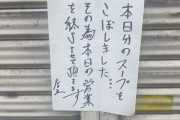 本日分のスープを
こぼしました…
その為本日の営業
を終了させて頂きます